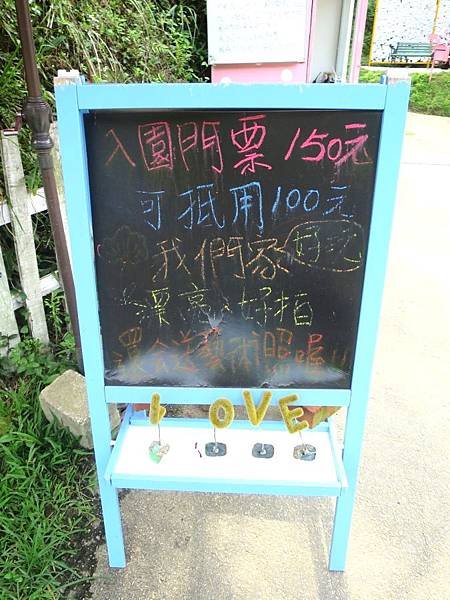 入園門票150元
可抵用100元
我們家好玩
漂亮好拍
還會送藝術照喔!!
LOVE